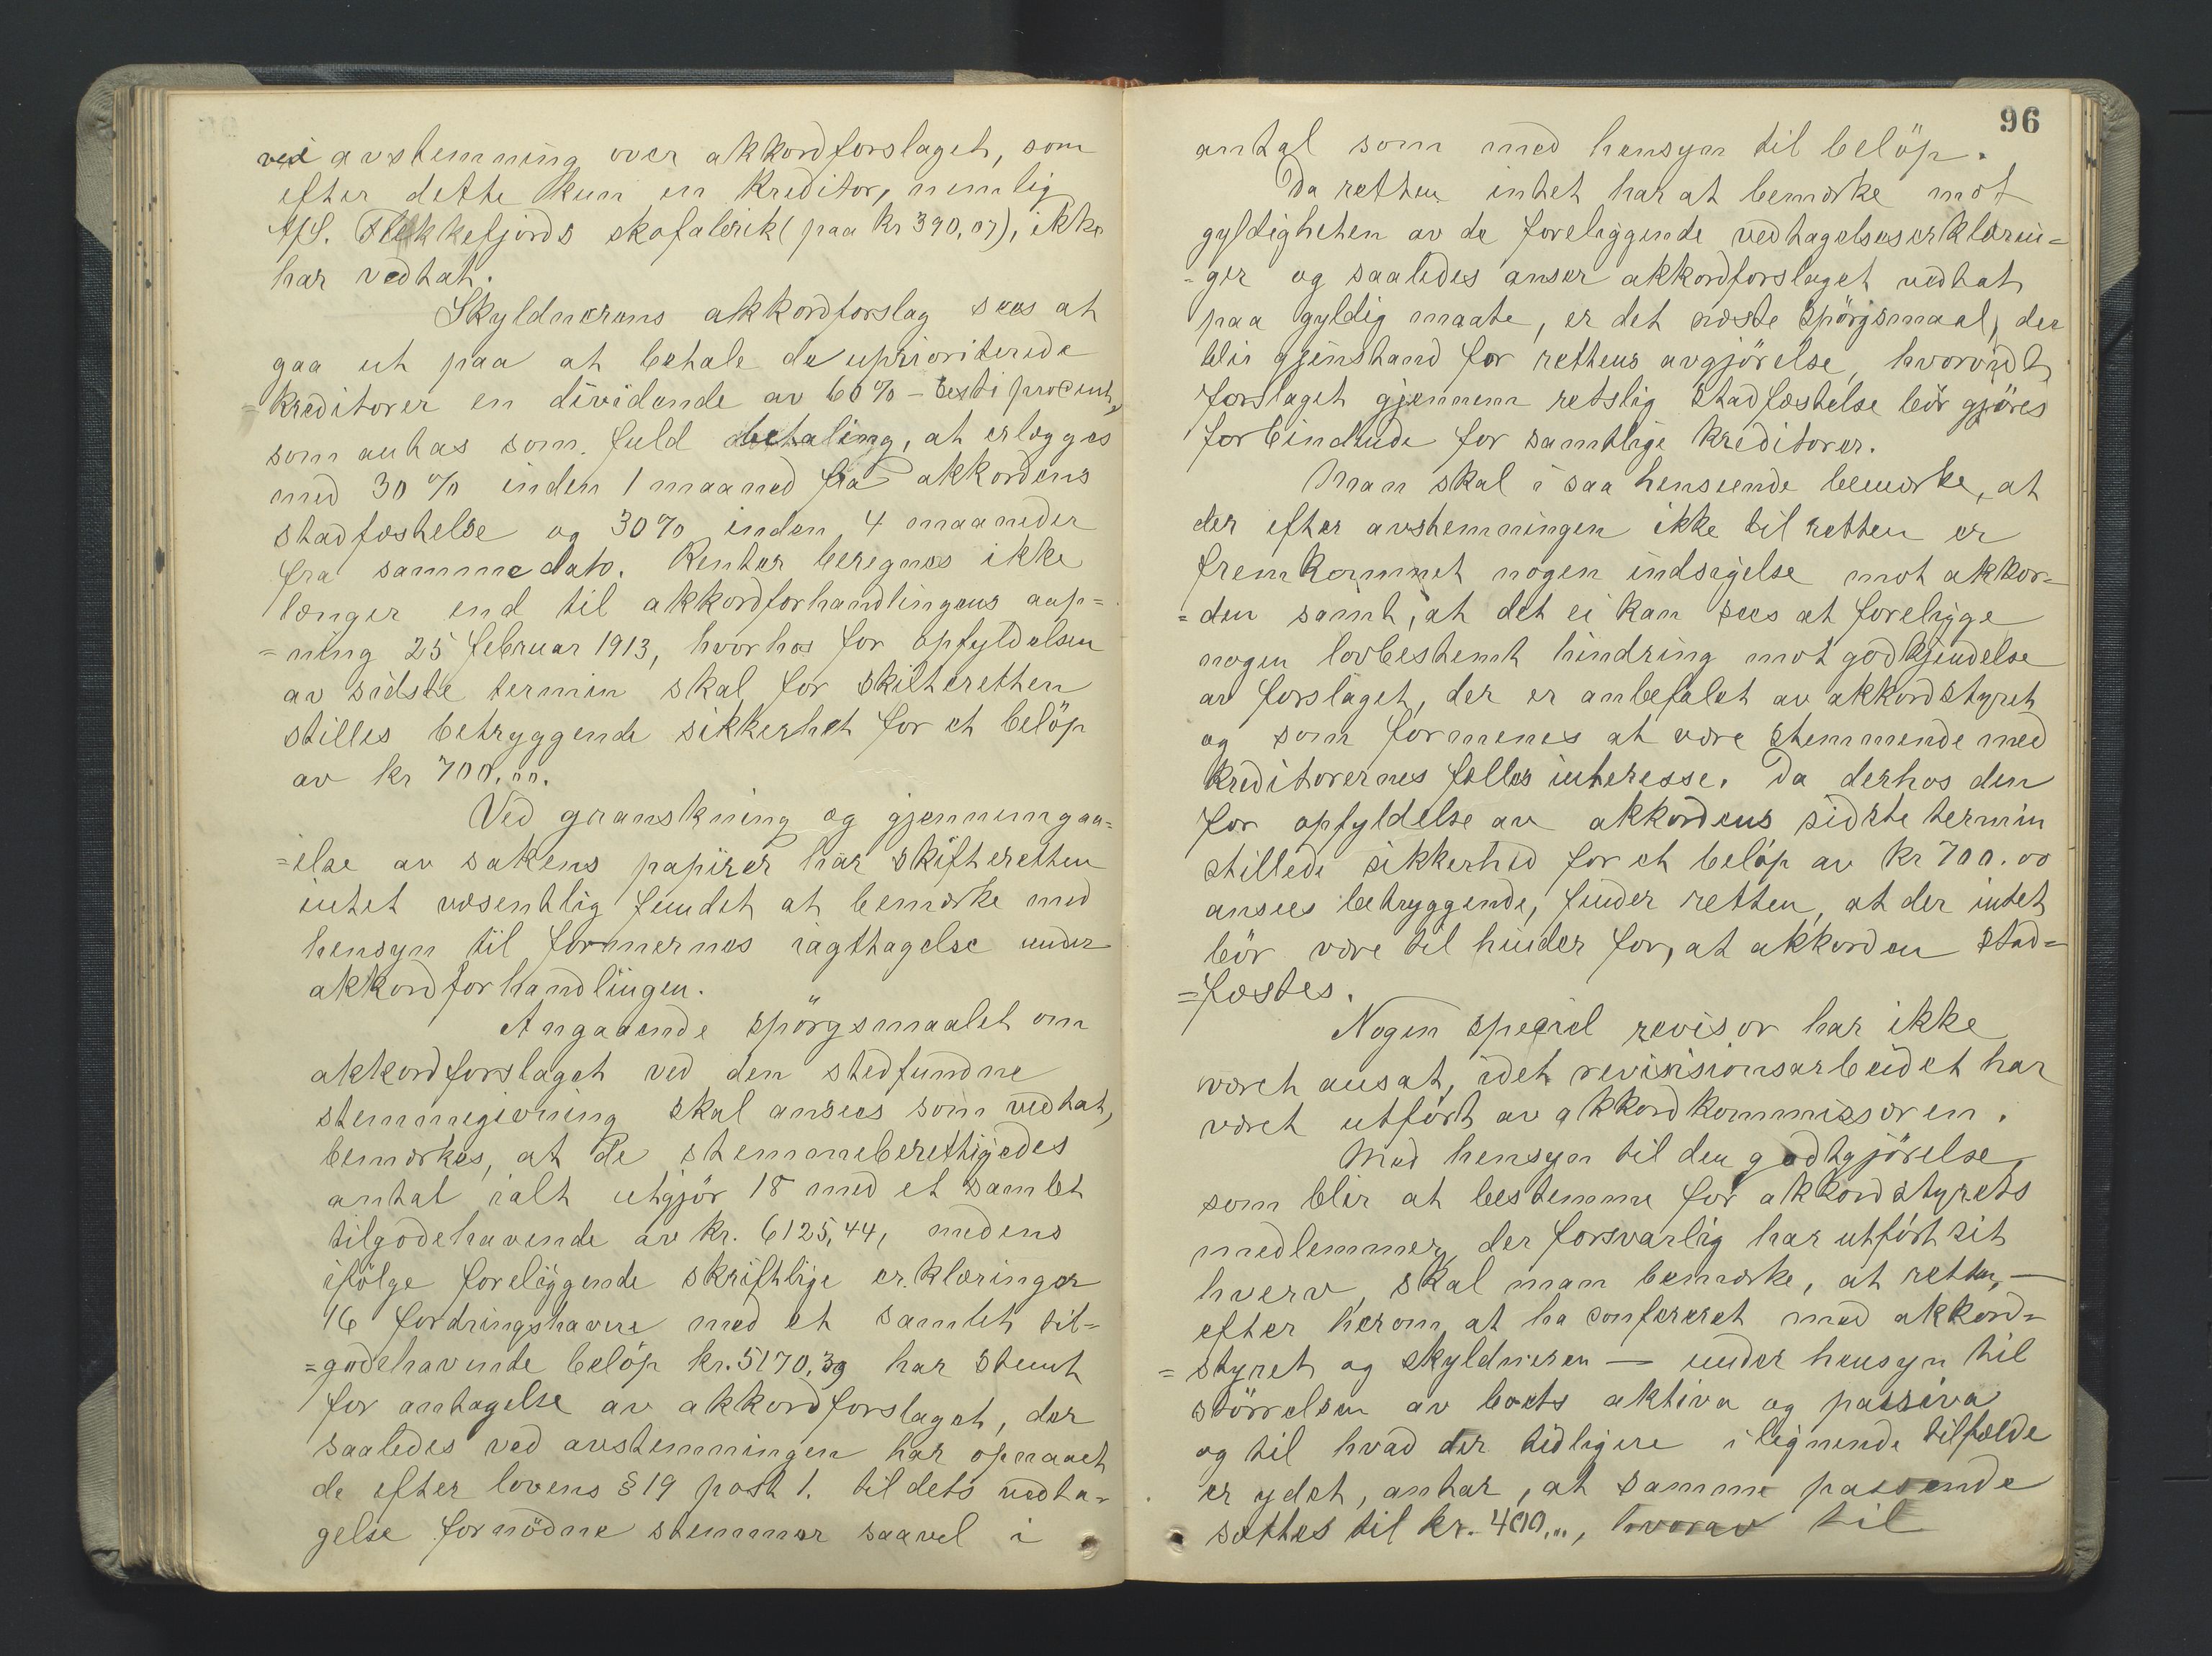 ved avstemning over akkordforslaget, som
efter dette kun en kreditor, nemlig
A/S. Flekkefjords skofabrik (paa kr 390,07), ikke
har vedtat.
Skyldnerens akkordforslag sees at
gaa ut paa at betale de uprioriterede
=kreditorer en dividende av 60% - sesti procent,
som antas som fuld betaling, at erlægges
med 30% inden 1 maaned fra akkordens
stadfæstelse og 30% inden 4 maaneder
fra samme dato. Renter beregnes ikke
længer end til akkordforhandlingens aap=
=ning 25 februar 1913, hvorhos for opfyldelsen
av sidste termin skal for skifteretten
stilles betryggende sikkerhet for et beløp
av kr 700.00.
Ved granskning og gjennemgaa=
=else av sakens papirer har skifteretten
intet væsentlig fundet at bemærke med
hensyn til formernes iagttagelse under
akkordforhandlingen.
Angaaende spörgsmaalet om
akkordforslaget ved den stedfundne
stemmegivning skal ansees som vedtat,
bemærkes, at de stemmeberettigedes
antal ialt utgjör 18 med et samlet
tilgodehavende av kr. 6125,44, medens
ifölge foreliggende skriftlige erklæringer
16 fordringshavere med et samlet til=
=godehavende belöp kr. 5170,39 har stemt
for antagelse av akkordforslaget, der
saaledes ved avstemningen har opnaaet
de efter lovens § 19 post 1. til dets vedta-
gelse fornödne stemmer saavel i
96
antal som med hensyn til belöp.
Da retten intet har at bemærke mot
gyldigheten av de foreliggende vedtagelseserklærin=
=ger og saaledes anser akkordforslaget vedtat
paa gyldig maate, er det næste spörgsmaal, der
blir gjenstand for rettens avgjörelse, hvorvidt
forslaget gjennem retslig stadfæstelse bör gjöres
forbindende for samtlige kreditorer.
Man skal i saa henseende bemærke, at
der efter avstemningen ikke til retten er
fremkommet nogen indsigelse mot akkor=
=den samt, at det ei kan sees at foreligge
nogen lovbestemt hindring mot godkjendelse
av forslaget, der er anbefalet av akkordstyret
og som formenes at være stemmende med
kreditorernes fælles interesse. Da derhos den
for opfyldelse av akkordens sidste termin
stillede sikkerhed for et belöp av kr 700.00
ansees betryggende, finder retten, at der intet
bör være til hinder for, at akkorden stad=
=fæstes.
Nogen speciel revisor har ikke
været ansat, idet revisisionsarbeidet har
været utfört av akkordkommissæren.
Med hensyn til den godtgjörelse,
som blir at bestemme for akkordstyrets
medlemmer, der forsvarlig har utfört sit
hverv, skal man bemærke, at retten, —
efter herom at ha confereret med akkord=
=styret og skyldneren — under hensyn til
störrelsen av boets aktiva og passiva
og til hvad der tidligere i lignende tilfælde
er ydet, antar, at samme passende
sættes til kr. 400,00, hvorav til